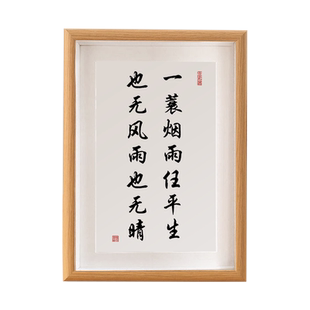 一蓑烟雨任平生
也无风雨也无晴